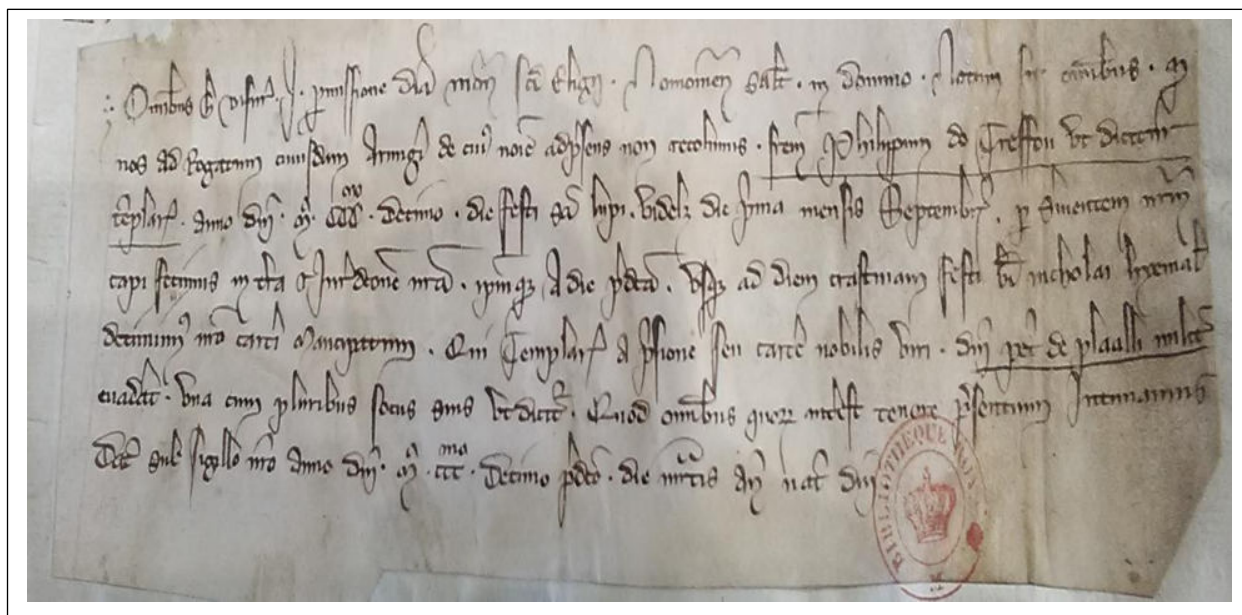 Omnibus hec visuris J. permissione divina monasterii sancti Eligii Noviomensis salutem in domino. Notum sit omnibus quod
nos ad rogatum cuiusdam Armigeri de cuius nomine ad presens non recolimus. fratrem Philippum de Treffou ut dicitur
templarium. Anno domini Mº CCCmo decimo. die festi sancti lupi. videlicet die prima mensis Septembris. per servientem nostrum
capi fecimus in terra et Jurisdictione nostra. ipsumque A die predicta. usque ad diem crastinam festi beati nicholai hyemalis
detinuimus nostro carceri mancipatum. Qui Templarius A prisione seu carcere nobilis viri. domini petri de plaalli militis
evaserat. una cum pluribus sociis suis ut dicitur. Quod omnibus quorum interest tenore presentium Intimamus
Datum sub sigillo nostro anno domini Mº CCCmo Decimo predicto. die martis ante natale domini
BIBLIOTHEQUE ROYALE